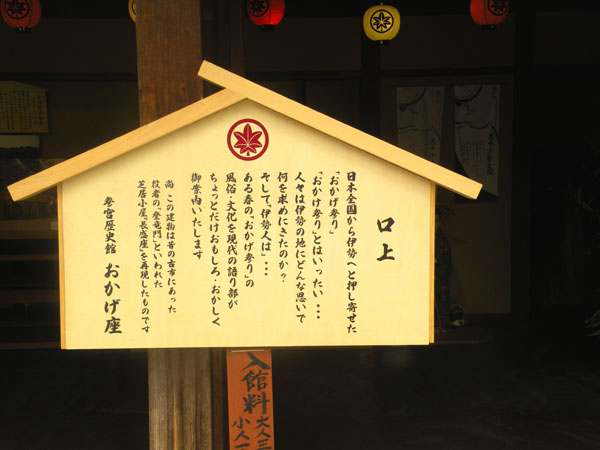 口上
日本全国から伊勢へと押し寄せた
「おかげ参り」
「おかげ参り」とはいったい・・・
人々は伊勢の地にどんな思いで
何を求めにきたのか？
そして、「伊勢人は」・・・
ある春の、「おかげ参り」の
風俗・文化を現代の語り部が
ちょっとだけおもしろ・おかしく
御案内いたします
尚 この建物は昔の古市にあった
役者の「登竜門」といわれた
芝居小屋「長盛座」を再現したものです
参宮歴史館 おかげ座
入館料
大人三
小人一